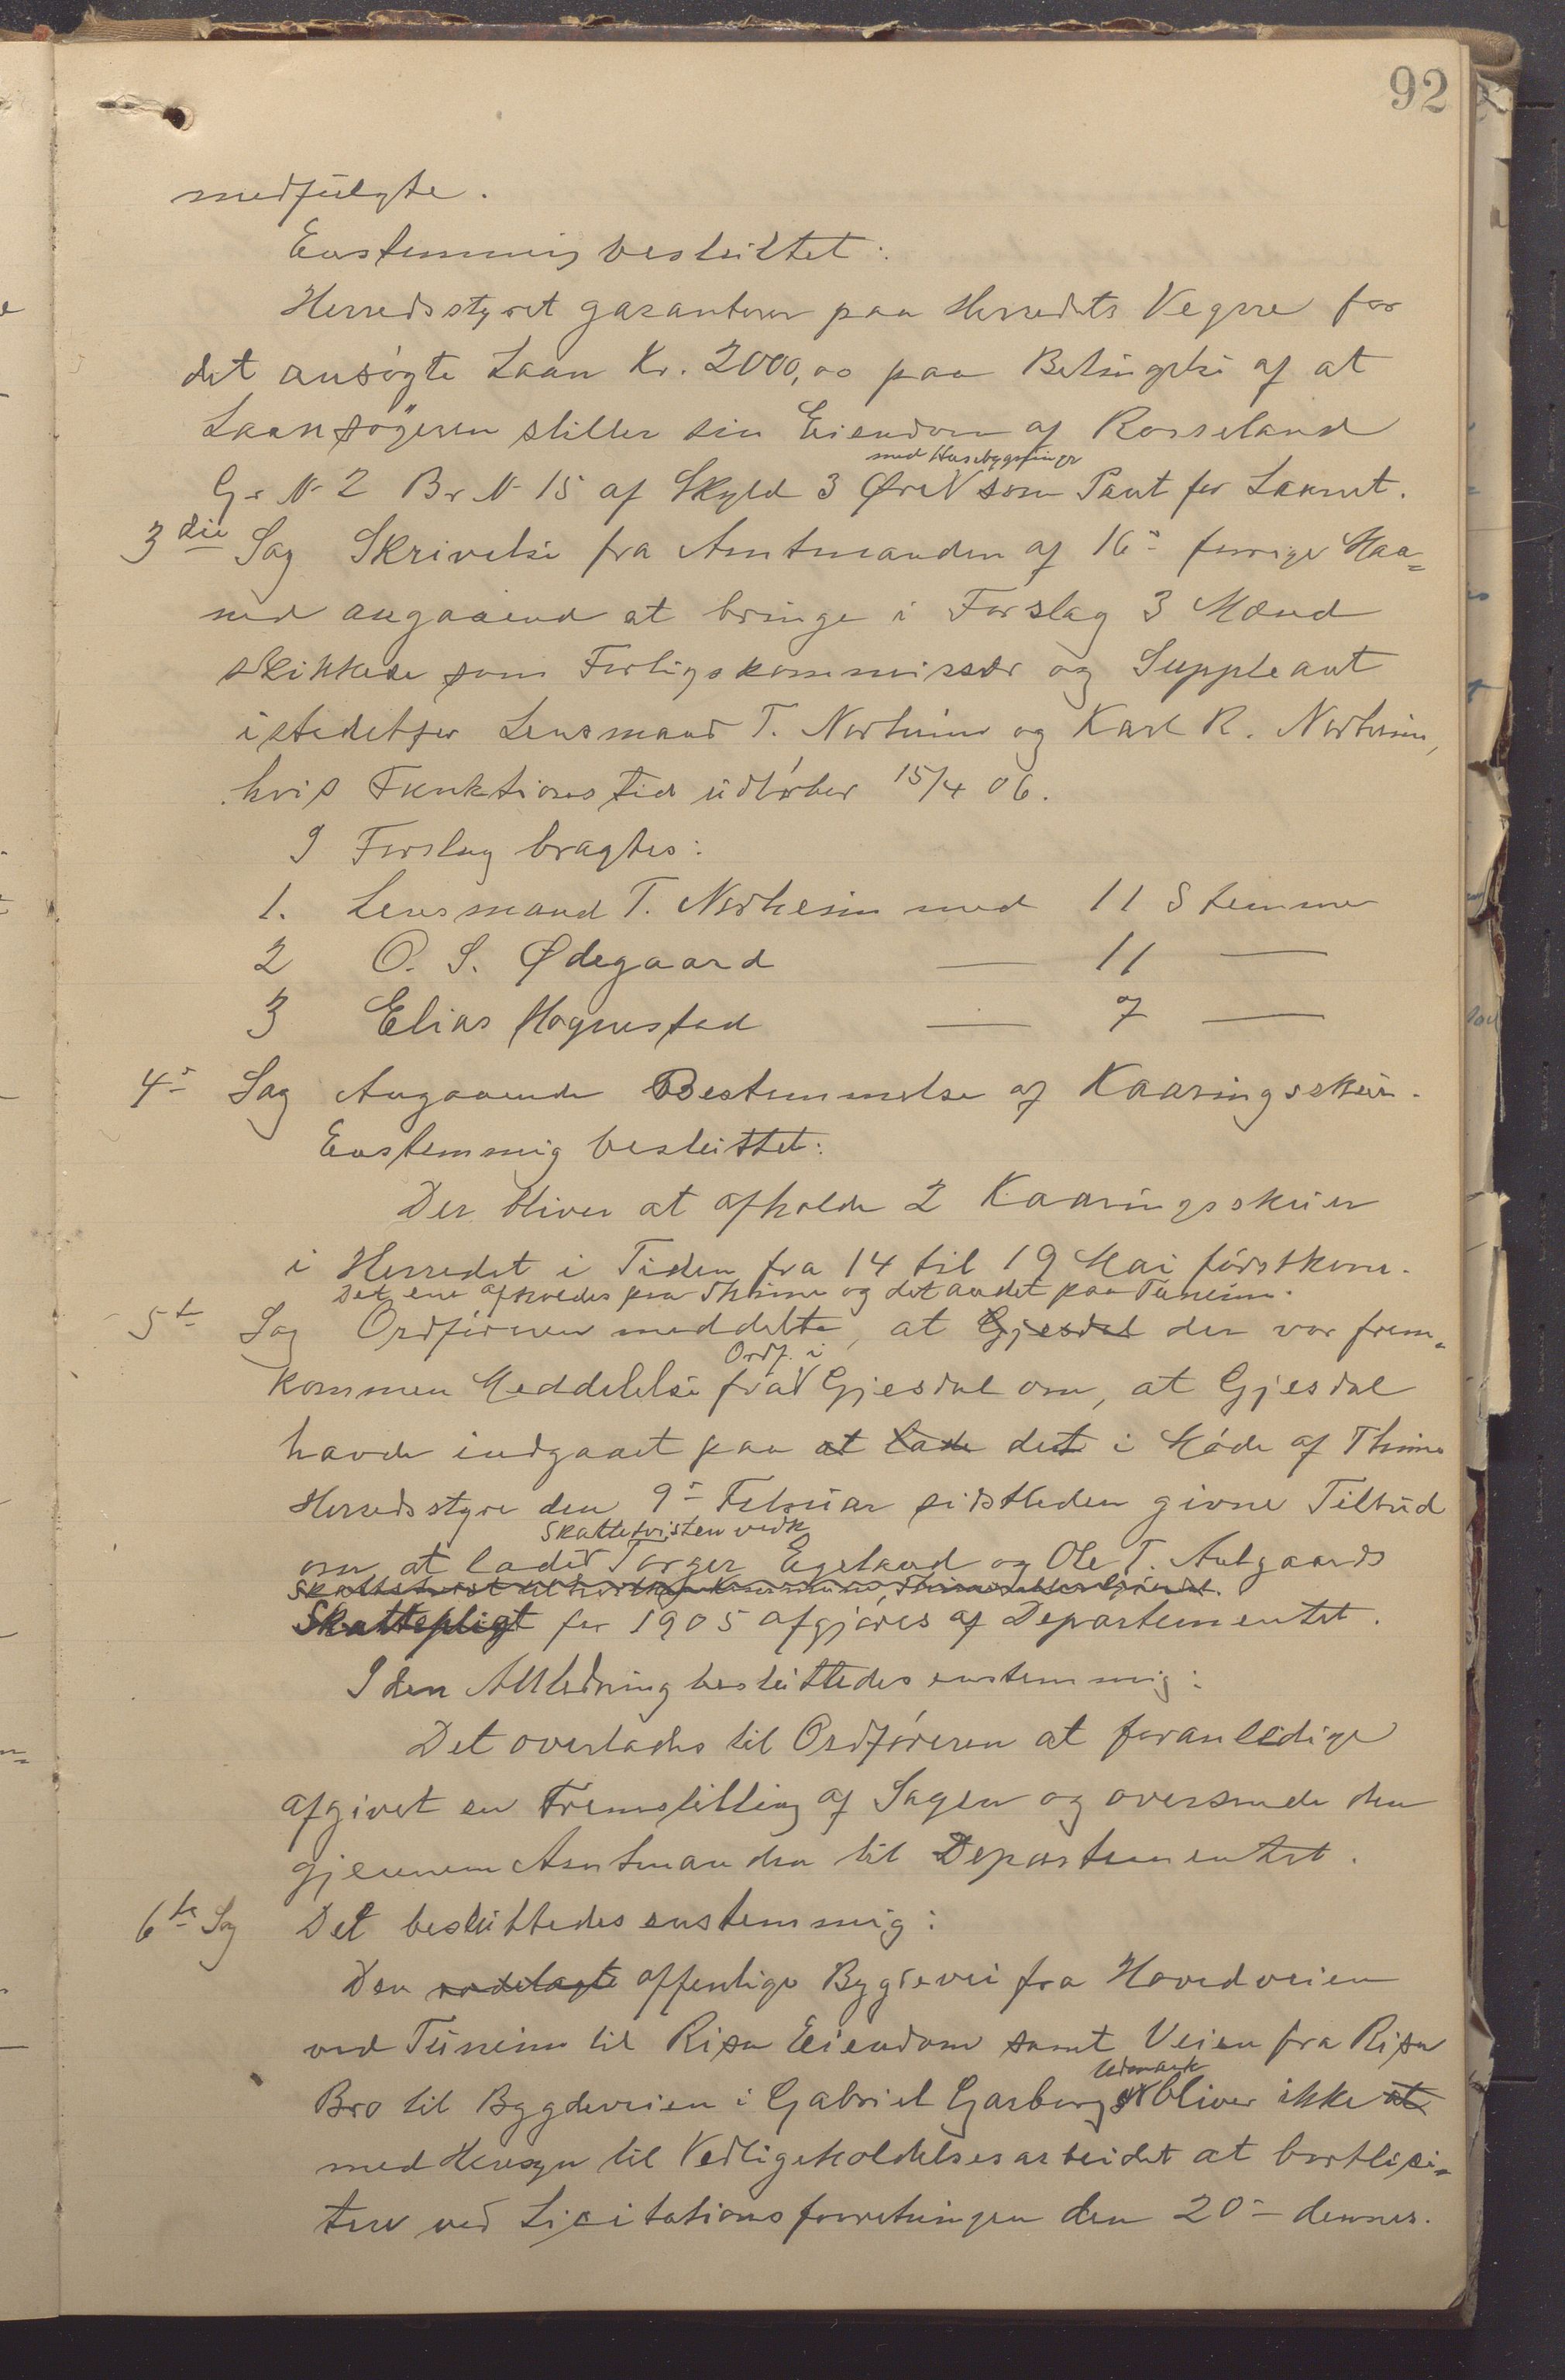 92
medfulgte.
Enstemmig besluttet:
Herredsstyret garanterer paa Herredets Vegne for
det ansøgte Laan Kr. 2000,00 paa Betingelse af at
Laansøgeren stiller sin Eiendom af Rosseland
med Husebygninger
Gr N- 2 Br N- 15 af Skyld 3 Øre som Pant for Laanet.
3die Sag Skrivelse fra Amtmanden af 16- forrige Maa=
ned angaaend at bringe i Forslag 3 Mænd
skikkede som Forligskommissær og Suppleant
istedetfor Lensmand T. Norheim og Karl R. Norheim,
hvis Funktionstid udløber 15/4 06.
I Forslag bragtes:
1. Lensmand T. Norheim med 11 Stemmer
2 O. S. Ødegaard — 11 —
3 Elias Hognestad — 7 —
4- Sag Angaaende Bestemmelse af Kaaringsskuer.
Enstemmig besluttet:
Der bliver at afholde 2 Kaaringsskuer
i Herredet i Tiden fra 14 til 19 Mai førstkom.
Det ene afholdes paa Thime og det andet paa Tuneim.
5te Sag Ordføreren meddelte, at Gjesdal der var frem=
Ordf. i
kommen Meddelelse fra Gjesdal om, at Gjesdal
havde indgaaet paa at lade det i Møde af Thime
Herredsstyre den 9- Februar sidstleden givne Tilbud
Skattetvisten vedk
om at lade Torger Egeland og Ole T. Aulgaards
Skattepligt for 1905 afgjøres af Departementet.
I den Anledning besluttedes enstemmig:
Det overlades til Ordføreren at foranledige
afgivet en Fremstilling af Sagen og oversende den
gjennem Amtmanden til Departementet.
6te Sag Det besluttedes enstemmig:
Den rodelagte offentlige Bygdevei fra Hovedveien
ved Tuneim til Risa Eiendom samt Veien fra Risa
Udmark
Bro til Bygdeveien i Gabriel Garborgs bliver ikke at
med Hensyn til Vedligeholdelsesarbeidet at bortlici=
tere ved Licitationsforretningen den 20- dennes.